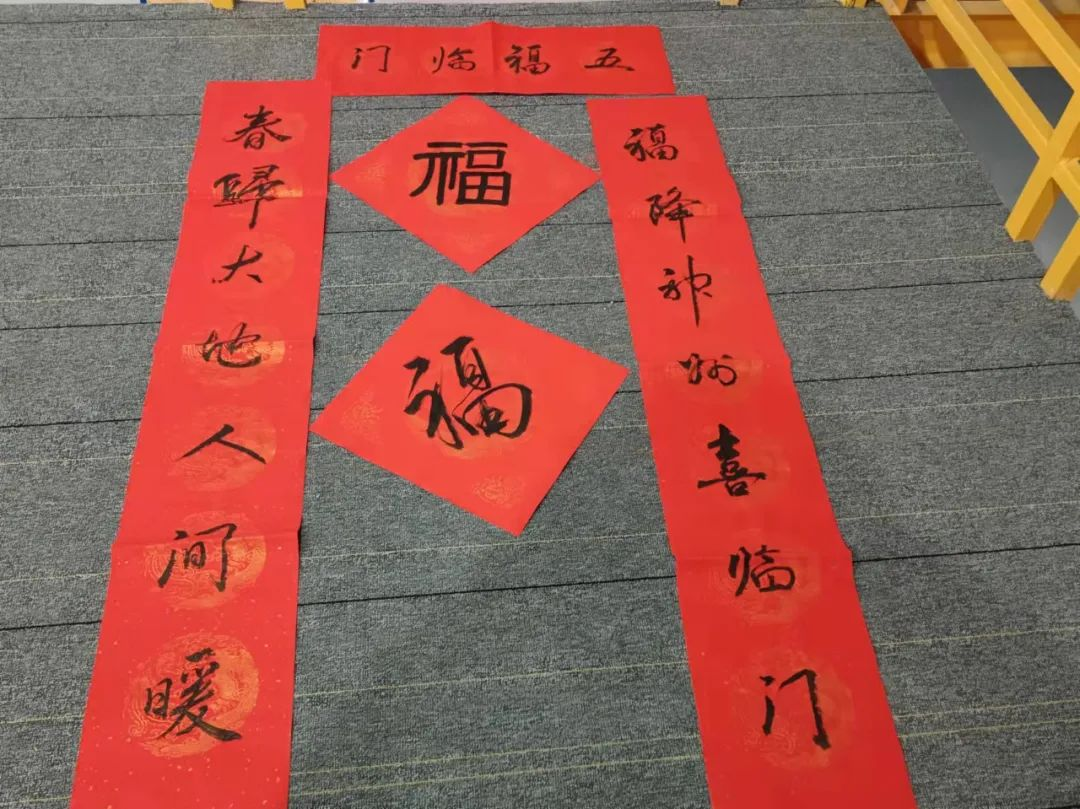 五福临门
福降神州喜临门
福
福
春歸大地人间暖